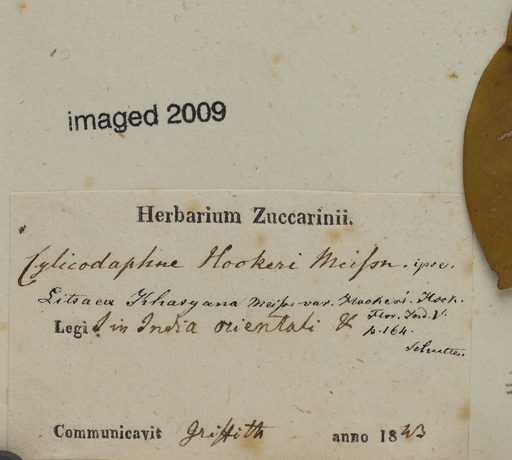 imaged 2009
Herbarium Zuccarinii.
*
Cylicodaphne Hookeri Meißn. ipse.
Litsaea Khasyana Meißn var. Hookeri. Hook.
Flor. Ind. V.
p. 164.
Legi in India orientali
Communicavit Griffith anno 1843